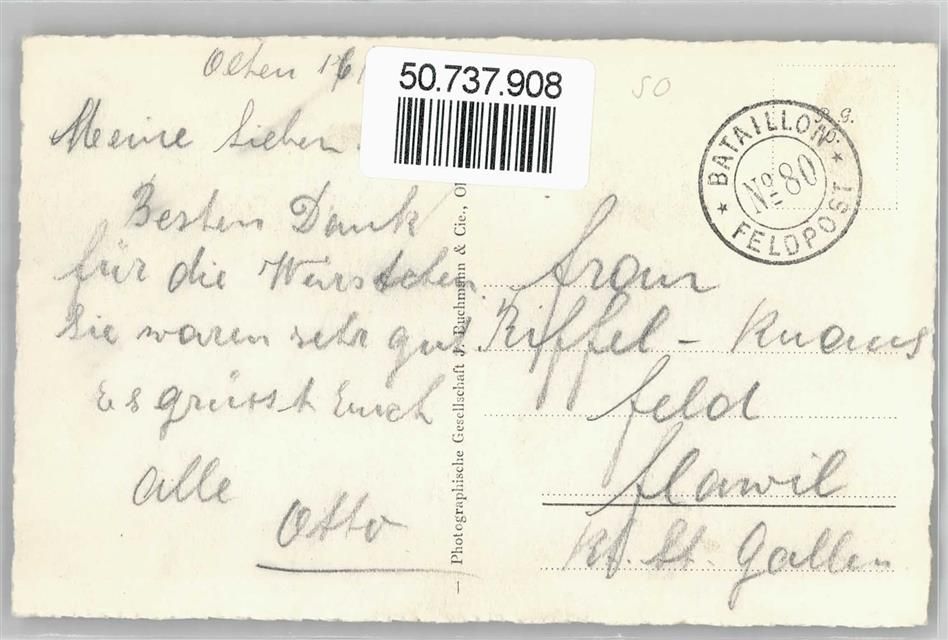 Olten 16
50.737.908
50
Meine Lieben.
Besten Dank
für die Würstchen.
Sie waren sehr gut.
Es grüsst Euch
alle
Otto
– Photographische Gesellschaft J. Buchmann & Cie., Ol
P. G.
BATAILLON
No 80
FELDPOST
Frau
Riffel – Knaus
Feld
Flawil
Kt. St. Gallen